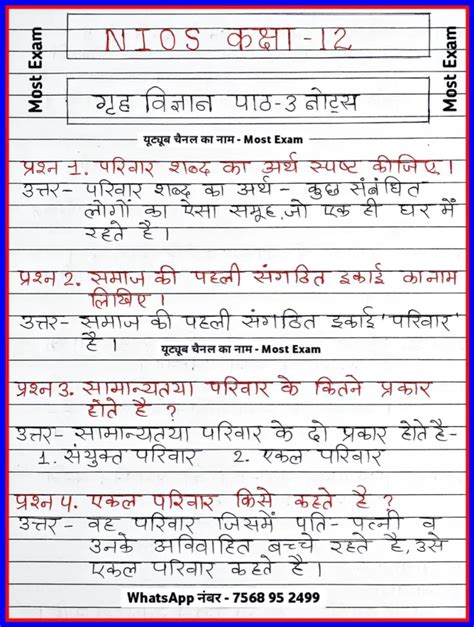 Most Exam
NIOS कक्षा-12
Most Exam
गृह विज्ञान पाठ-3 नोट्स
यूट्यूब चैनल का नाम - Most Exam
प्रश्न 1. परिवार शब्द का अर्थ स्पष्ट कीजिए।
उत्तर- परिवार शब्द का अर्थ - कुछ संबंधित
लोगों का ऐसा समूह,जो एक ही घर में
रहते है।
प्रश्न 2. समाज की पहली संगठित इकाई का नाम
लिखिए।
उत्तर- समाज की पहली संगठित इकाई 'परिवार'
है।
यूट्यूब चैनल का नाम - Most Exam
प्रश्न 3. सामान्यतया परिवार के कितने प्रकार
होते है ?
उत्तर- सामान्यतया परिवार के दो प्रकार होते है-
1. संयुक्त परिवार 2. एकल परिवार
प्रश्न 4. एकल परिवार किसे कहते है ?
उत्तर- वह परिवार जिसमें पति-पत्नी व
उनके अविवाहित बच्चे रहते है, उसे
एकल परिवार कहते है।
WhatsApp नंबर - 7568 95 2499